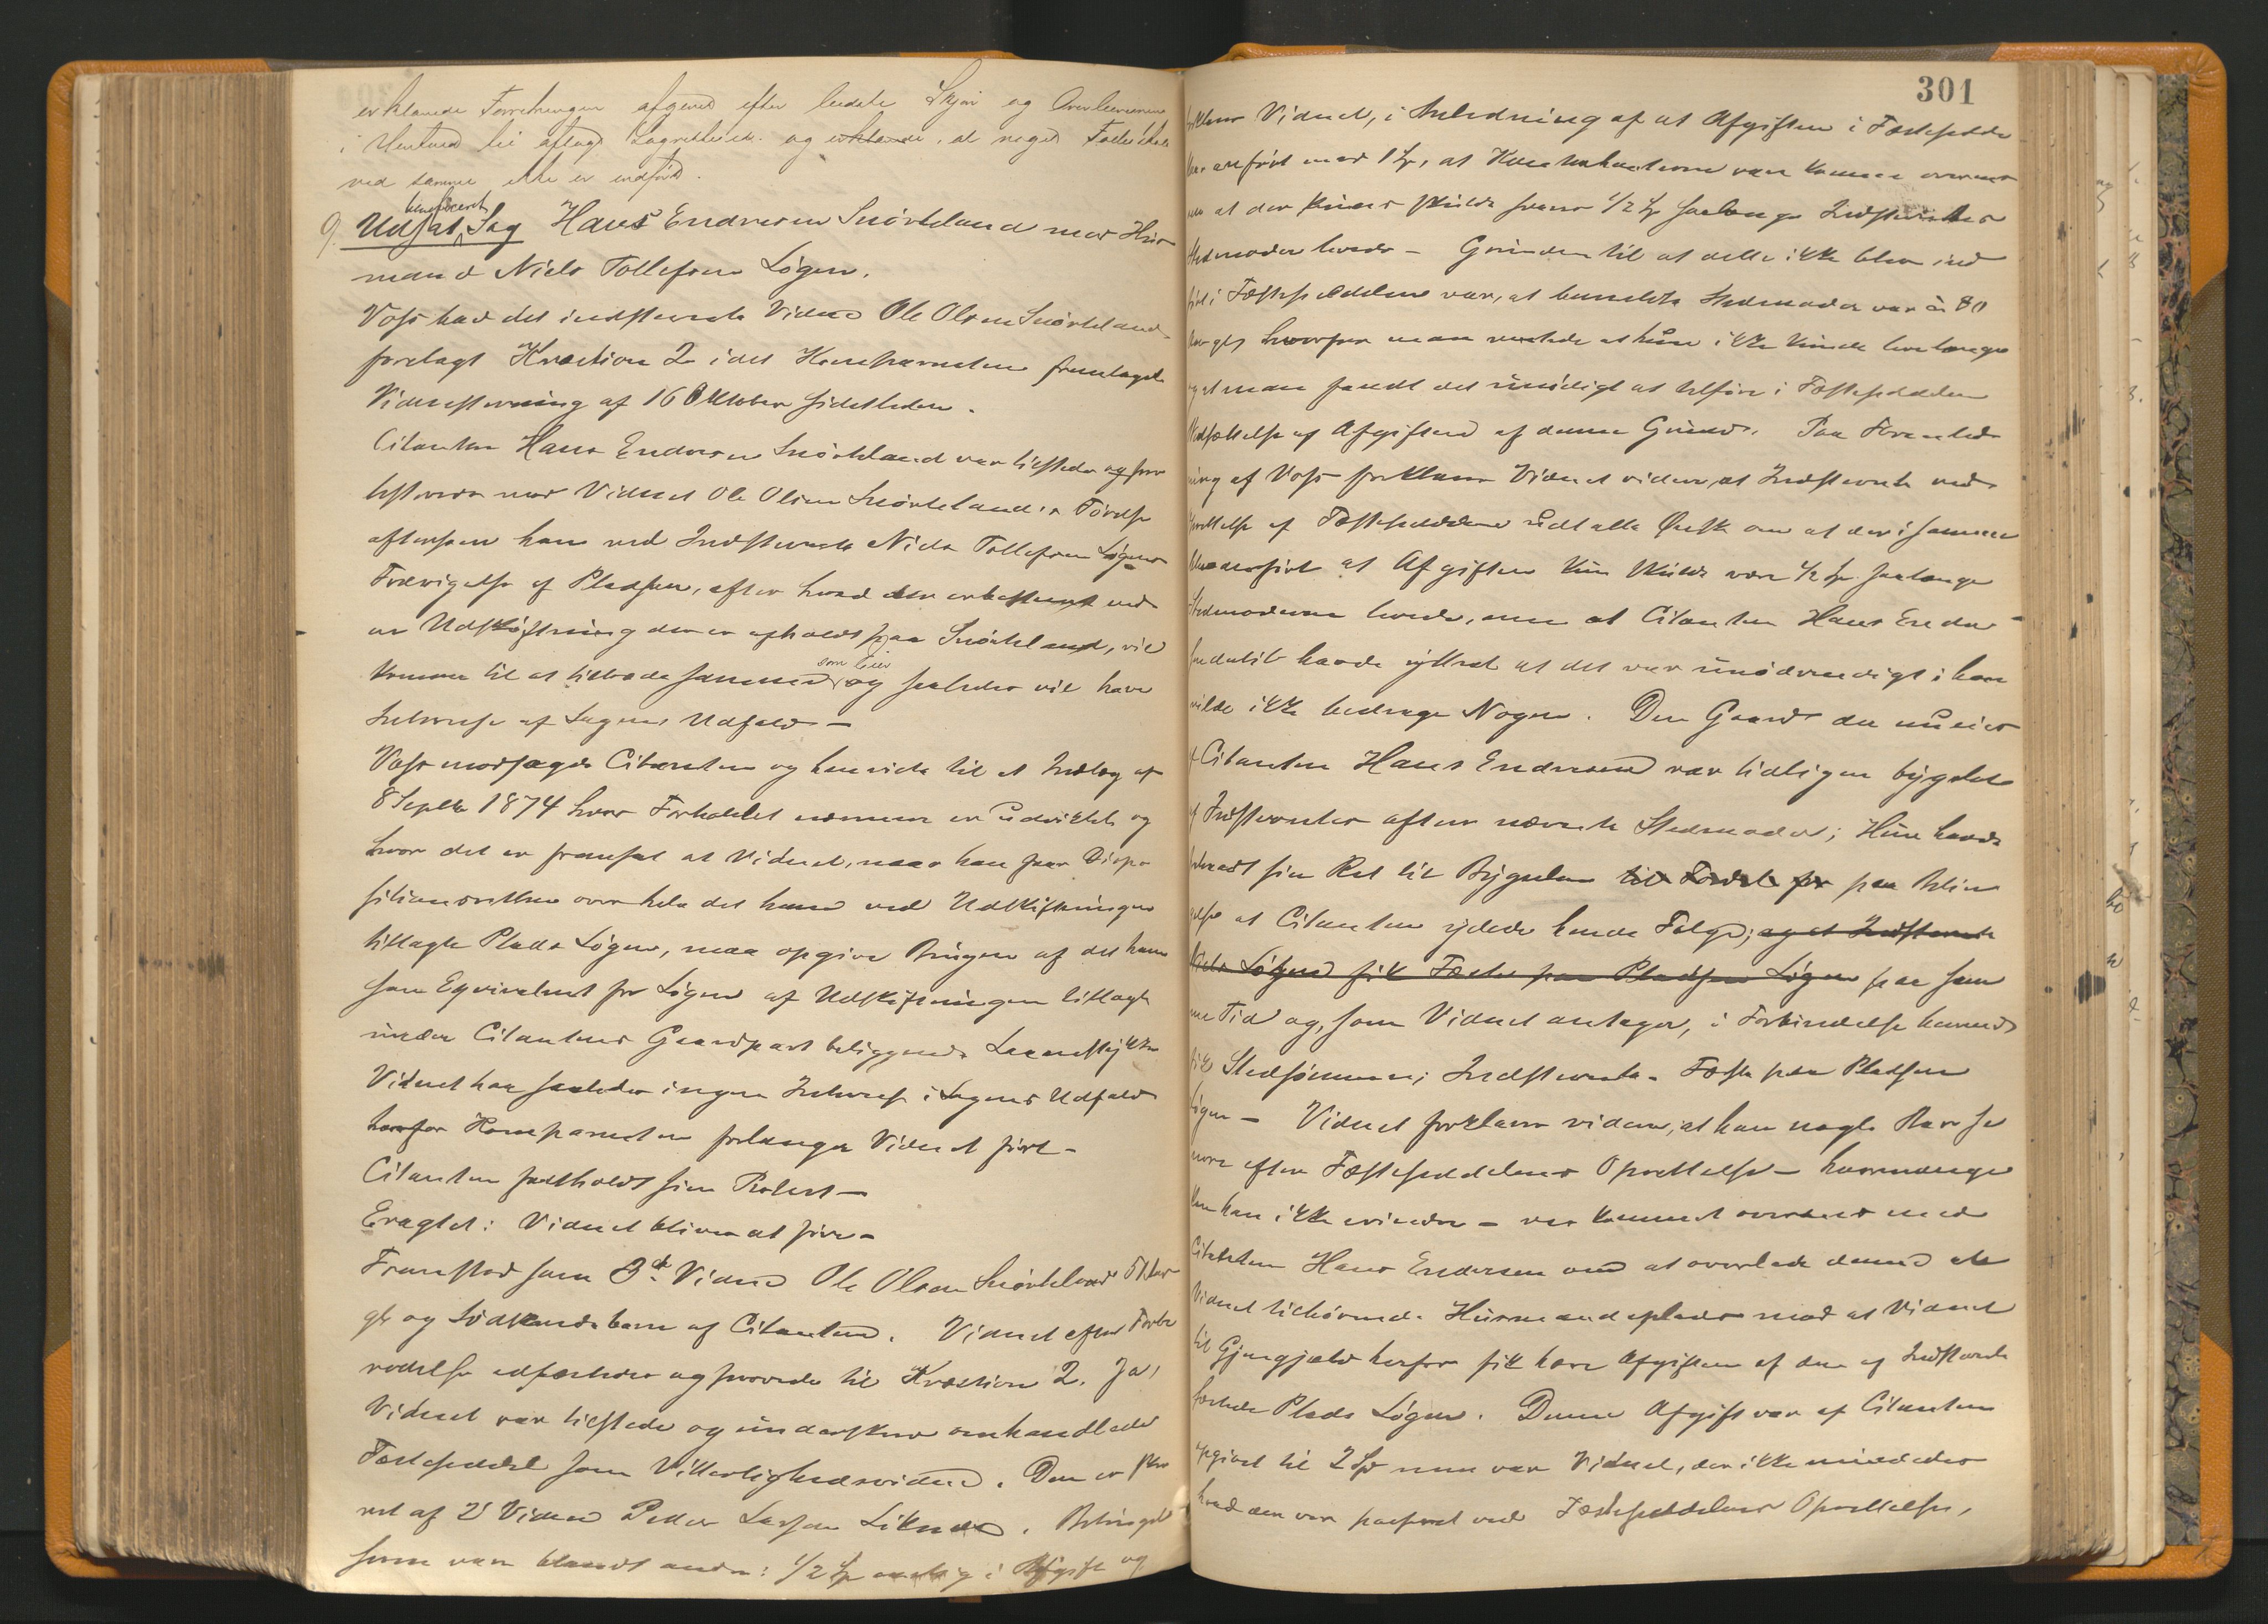 erklærede Forretningen afgivet efter bedste Skjøn og Overbevisning
i Henhold til aflagt Lagrettesed. og erklærede, at noget
ved samme ikke er indført.
9. Udsat beneficeret Sag Hans Endresen Snörteland mod Hus-
mand Niels Tollefsen Lögen.
Voss bad det indstevnte Vidne Ole Olsen Snörteland
forelagt Kvæstion 2 idet Komparenten fremlagde
Vidnestevning af 16 Oktober sidstleden.
Citanten Hans Endresen Snörteland var tilstede og pro
testerede mod Vidnet Ole Olsen Snörtelands Förelse
eftersom han ved Indstevnte Niels Tollefsen Lögens
Fravigelse af Pladsen, efter hvad der er bestemt ved
en Udskiftning der er afholdt paa Snörteland, vil
komme til at tiltræde samme som Eier og saaledes vil have
Interesse af Sagens Udfald -
Voss modsagde Citanten og henviste til et Indlæg af
8 Septbr 1874 hvor Forholdet nærmere er udviklet og
hvor det er fremsat at Vidnet, naar han faar Dispo-
sitionsretten over hele det ham ved Udskiftningen
tillagte Plads Lögen, maa opgive Brugen af det ham
som Eqvivalent for Lögen af Udskiftningen tillagte
under Citantens Gaardpart beliggende
Vidnet har saaledes ingen Interesse i Sagens Udfald
hvorfor Komparenten forlanger Vidnet fört -
Citanten fastholdt sin Protest -
Eragtet: Vidnet bliver at före -
Fremstod som 3d Vidne Ole Olsen Snörteland
gl. og Södskendebarn af Citanten. Vidnet efter Forbe
redelse edfæstedes og svarede til Kvæstion 2. Ja!
Vidnet var tilstede og underskrev omhandlede
Fæsteseddel som Vitterlighedsvidne. Den er skre
vet af 2d Vidne Petter Larsen . Betingel
serne vare blandt andre: 1/2 Sp aarlig i Afgift og
301
forklarer Vidnet, i Anledning af at Afgiften i Fæstesedde
len er anfört med 1 Sp, at Kontrahenterne vare komne overens
om at der kuns skulde svares 1/2 Sp saalænge Indstevntes
Stedmoder levede - Grunden til at dette ikke blev ind
fört i Fæstesedelen var, at bemeldte Stedmoder var c. 80
Aar gl, hvorfor man ventede at hun ikke kunde leve længe
og at man fandt det unödigt at tilföre i Fæstesedelen
Nedsættelse af Afgiften af denne Grund. Paa Foranled
ning af Voss forklarer Vidnet videre, at Indstevnte ved
Oprettelse af Fæstesedelen udtalte Önske om at der i samme
blev anfört at Afgiften kun skulde være 1/2 Sp saalænge
Stedmoderen levede, men at Citanten Hans Endre-
sen dertil havde yttret at det var unödvendigt; han
vilde ikke bedrage Nogen. Den Gaard der nu eies
af Citanten Hans Endresen var tidligere bygslet
af Indstevntes oftere nævnte Stedmoder; Hun havde
frafaldt sin Ret til Bygselen til Fordel for paa Betin
gelse at Citanten ydede hende Folge; og at Indstevnte
Niels Lögen fik Fæste paa Pladsen Lögen paa sam
me Tid og, som Vidnet antager, i Forbindelse hermed
fik Stedsönnen, Indstevnte - Fæste paa Pladsen
Lögen - Vidnet forklarer videre, at han nogle Aar se
nere efter Fæsteseddelens Oprettelse - hvormange
Aar kan ikke erindre - var kommet overens med
Citanten Hans Endresen om at overlade denne et
Vidnet tilhörende Husmandsplads mod at Vidnet
til Gjengjæld herfor fik have Afgiften af den af Indstevnte
fæstede Plads Lögen. Denne Afgift var af Citanten
opgivet til 2 Sp men var Vidnet, der ikke mindedes
hvad der var passeret ved Fæsteseddelens Oprettelse,